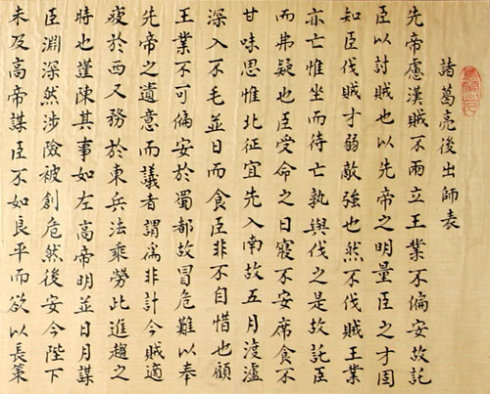 諸葛亮後出師表
先帝慮漢賊不兩立王業不偏安故託
臣以討賊也以先帝之明量臣之才固
知臣伐賊才弱敵強也然不伐賊王業
亦亡惟坐而待亡孰與伐之是故託臣
而弗疑也臣受命之日寢不安席食不
甘味思惟北征宜先入南故五月渡瀘
深入不毛並日而食臣非不自惜也顧
王業不可偏安於蜀都故冒危難以奉
先帝之遺意而議者謂爲非計今賊適
疲於西又務於東兵法乘勞此進趨之
時也謹陳其事如左高帝明並日月謀
臣淵深然涉險被創危然後安今陛下
未及高帝謀臣不如良平而欲以長策